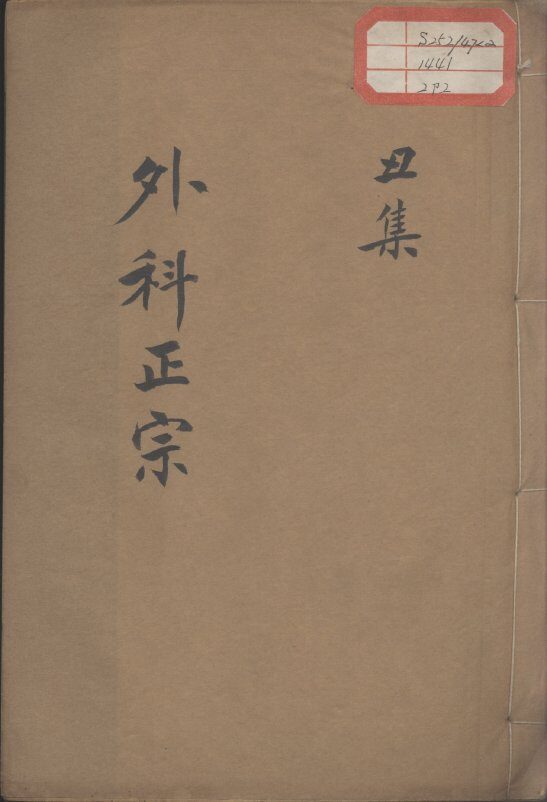 1441
2P2
丑集
外科正宗